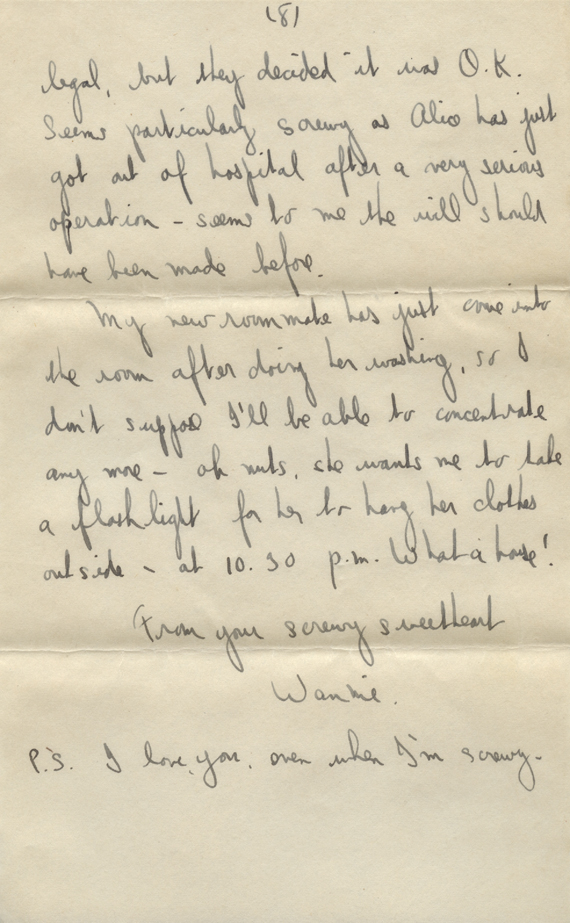 (8)
legal, but they decided it was O.K.
Seems particularly screwy as Alice has just
got out of hospital after a very serious
operation - seems to me the will should
have been made before.
My new roommate has just come into
the room after doing her washing, so I
don't suppose I'll be able to concentrate
any more - oh nuts, she wants me to take
a flashlight for her to hang her clothes
outside - at 10.30 p.m. What a house!
From your screwy sweetheart
Winnie.
P.S. I love you, even when I'm screwy.